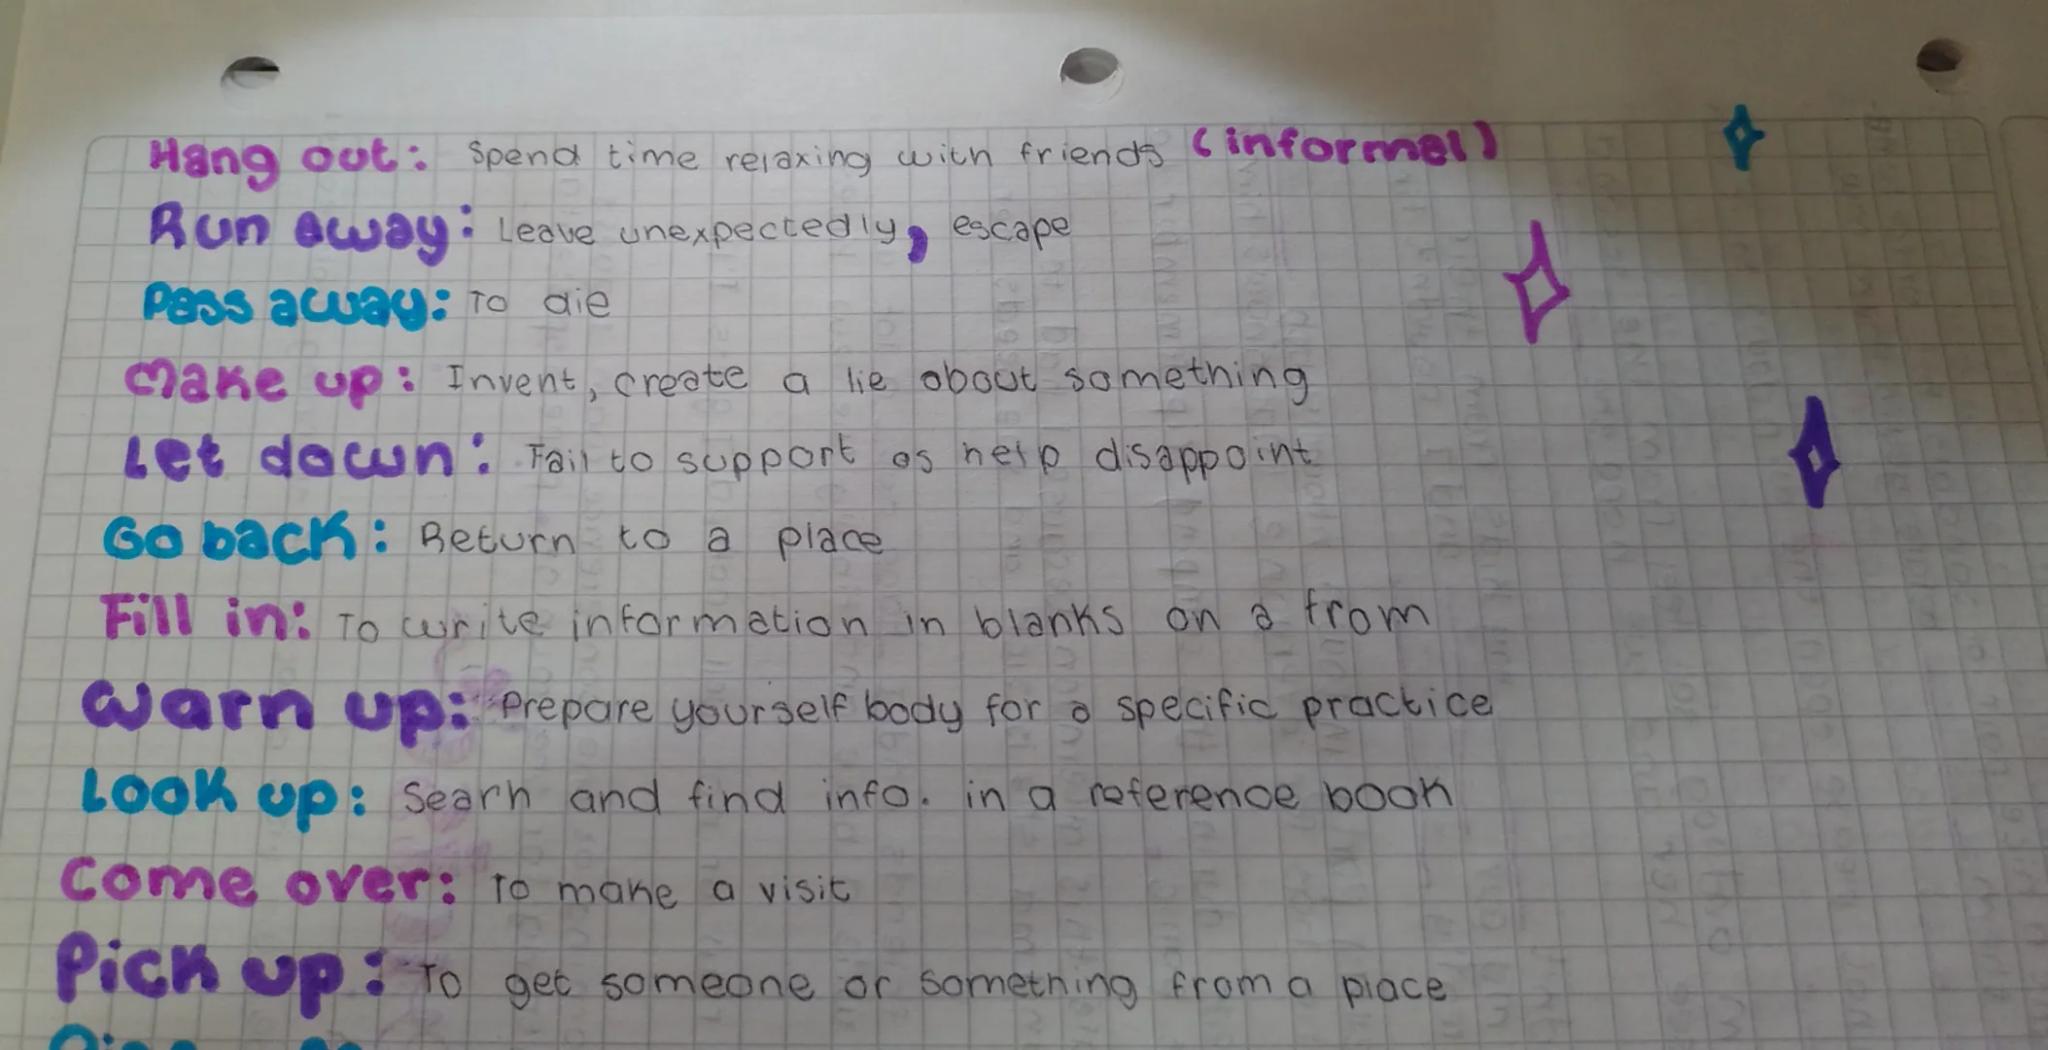 Hang out: Spend time relaxing with friends (informel)
Run away: Leave unexpectedly, escape
Pass away: To die
Make up: Invent, create a lie about something
Let down: Fail to support os help disappoint
Go back: Return to a place
Fill in: To write information in blanks on a from
Warn up: Prepare yourself body for a specific practice
Look up: Searh and find info. in a reference book
Come over: To make a visit
Pick up: To get someone or something from a place